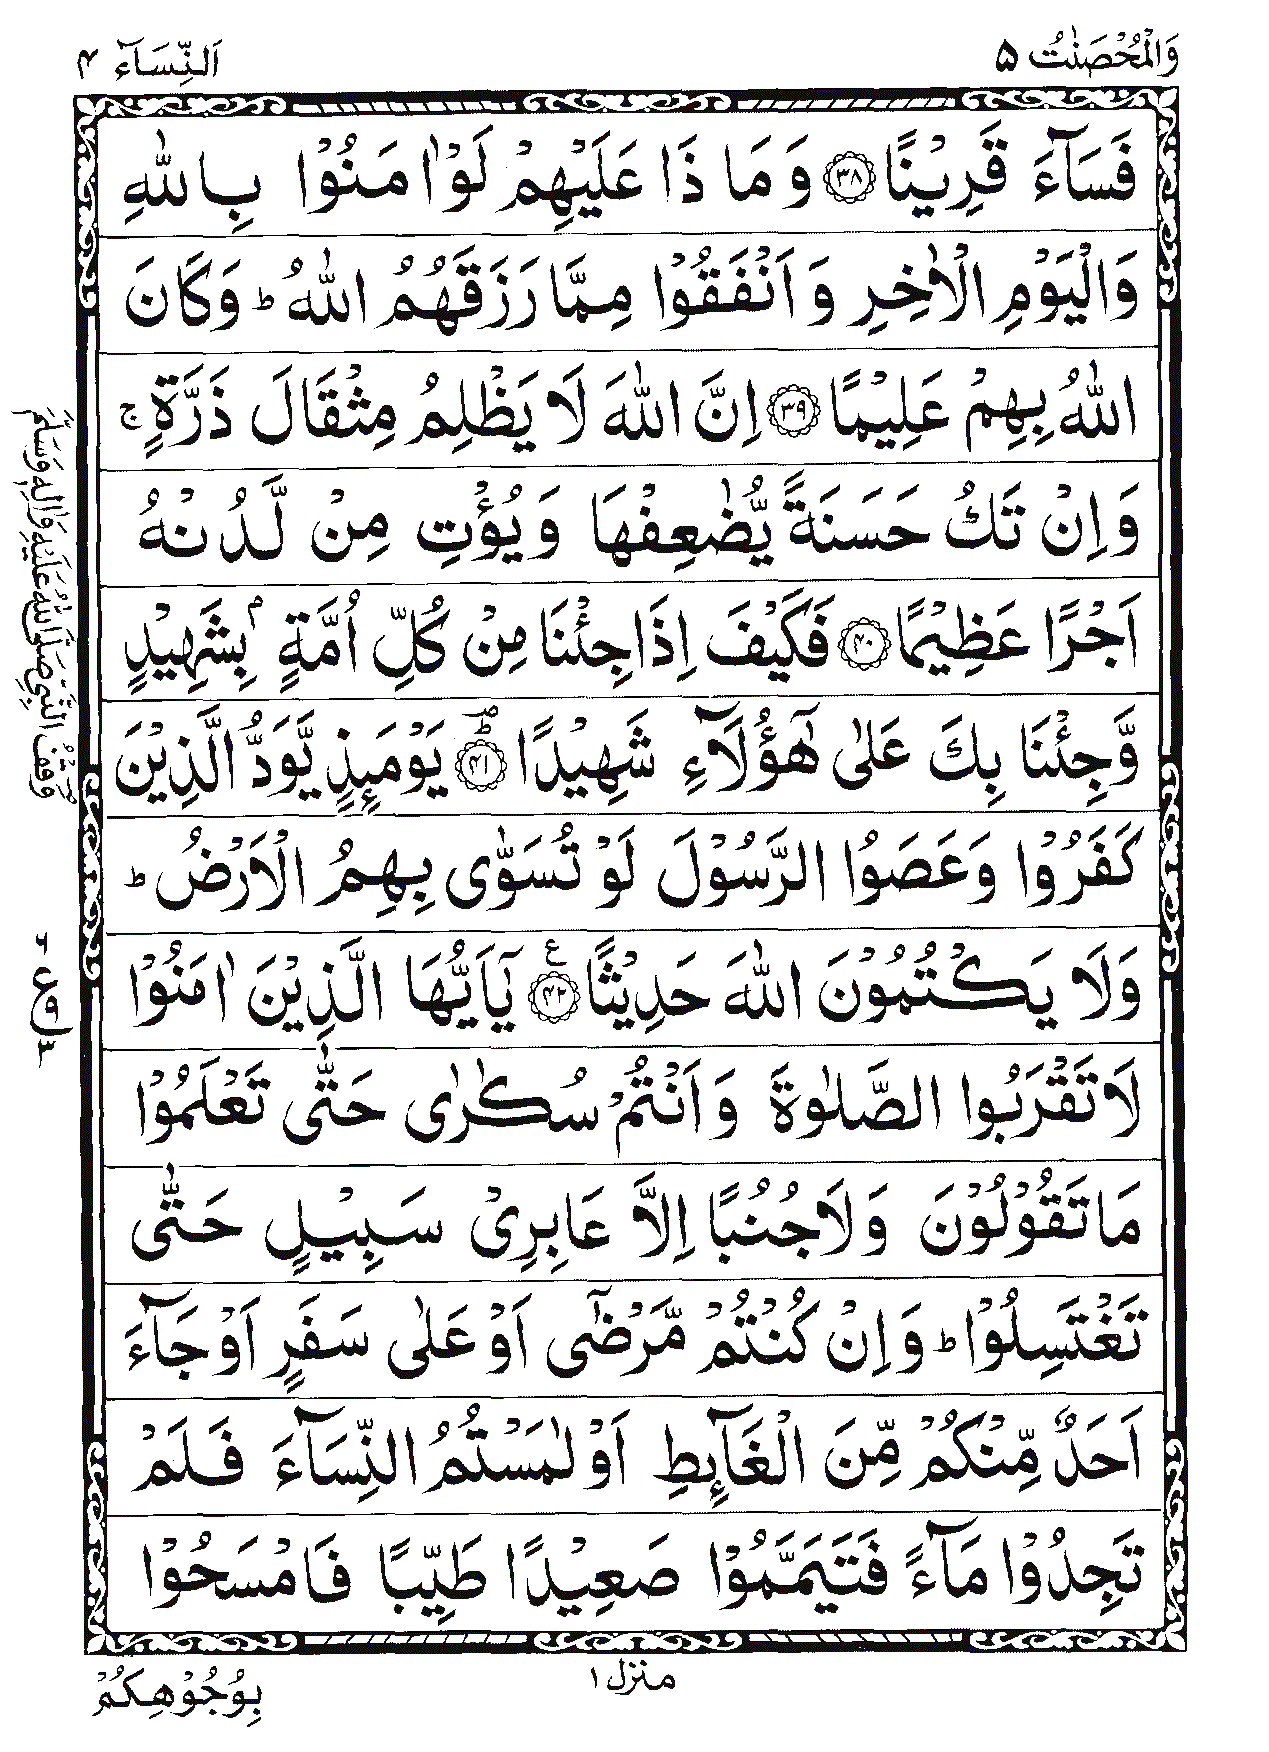 وَالْمُحْصَنٰتُ ۵
اَلنِّسَآءِ ۴
فَسَآءَ قَرِيْنًا ﴿۳۸﴾ وَمَا ذَا عَلَيْهِمْ لَوْ اٰمَنُوْا بِاللّٰهِ
وَالْيَوْمِ الْاٰخِرِ وَاَنْفَقُوْا مِمَّا رَزَقَهُمُ اللّٰهُ ؕ وَكَانَ
اللّٰهُ بِهِمْ عَلِيْمًا ﴿۳۹﴾ اِنَّ اللّٰهَ لَا يَظْلِمُ مِثْقَالَ ذَرَّةٍ ۚ
وَاِنْ تَكُ حَسَنَةً يُّضٰعِفْهَا وَيُؤْتِ مِنْ لَّدُنْهُ
اَجْرًا عَظِيْمًا ﴿۴۰﴾ فَكَيْفَ اِذَا جِئْنَا مِنْ كُلِّ اُمَّةٍۭ بِشَهِيْدٍ
وَّجِئْنَا بِكَ عَلٰى هٰٓؤُلَآءِ شَهِيْدًا ﴿۴۱﴾ؕ يَوْمَئِذٍ يَّوَدُّ الَّذِيْنَ
كَفَرُوْا وَعَصَوُا الرَّسُوْلَ لَوْ تُسَوّٰى بِهِمُ الْاَرْضُ ؕ
وَلَا يَكْتُمُوْنَ اللّٰهَ حَدِيْثًا ﴿۴۲﴾ ع يٰٓاَيُّهَا الَّذِيْنَ اٰمَنُوْا
لَا تَقْرَبُوا الصَّلٰوةَ وَاَنْتُمْ سُكٰرٰى حَتّٰى تَعْلَمُوْا
مَا تَقُوْلُوْنَ وَلَا جُنُبًا اِلَّا عَابِرِيْ سَبِيْلٍ حَتّٰى
تَغْتَسِلُوْا ؕ وَاِنْ كُنْتُمْ مَّرْضٰٓى اَوْ عَلٰى سَفَرٍ اَوْ جَآءَ
اَحَدٌ مِّنْكُمْ مِّنَ الْغَآئِطِ اَوْ لٰمَسْتُمُ النِّسَآءَ فَلَمْ
تَجِدُوْا مَآءً فَتَيَمَّمُوْا صَعِيْدًا طَيِّبًا فَامْسَحُوْا
وقف النَّبِيِّ صَلَّى اللّٰهُ عَلَيْهِ وَاٰلِهٖ وَسَلَّمَ
ع
۹
۳
منزل ۱
بِوُجُوْهِكُمْ